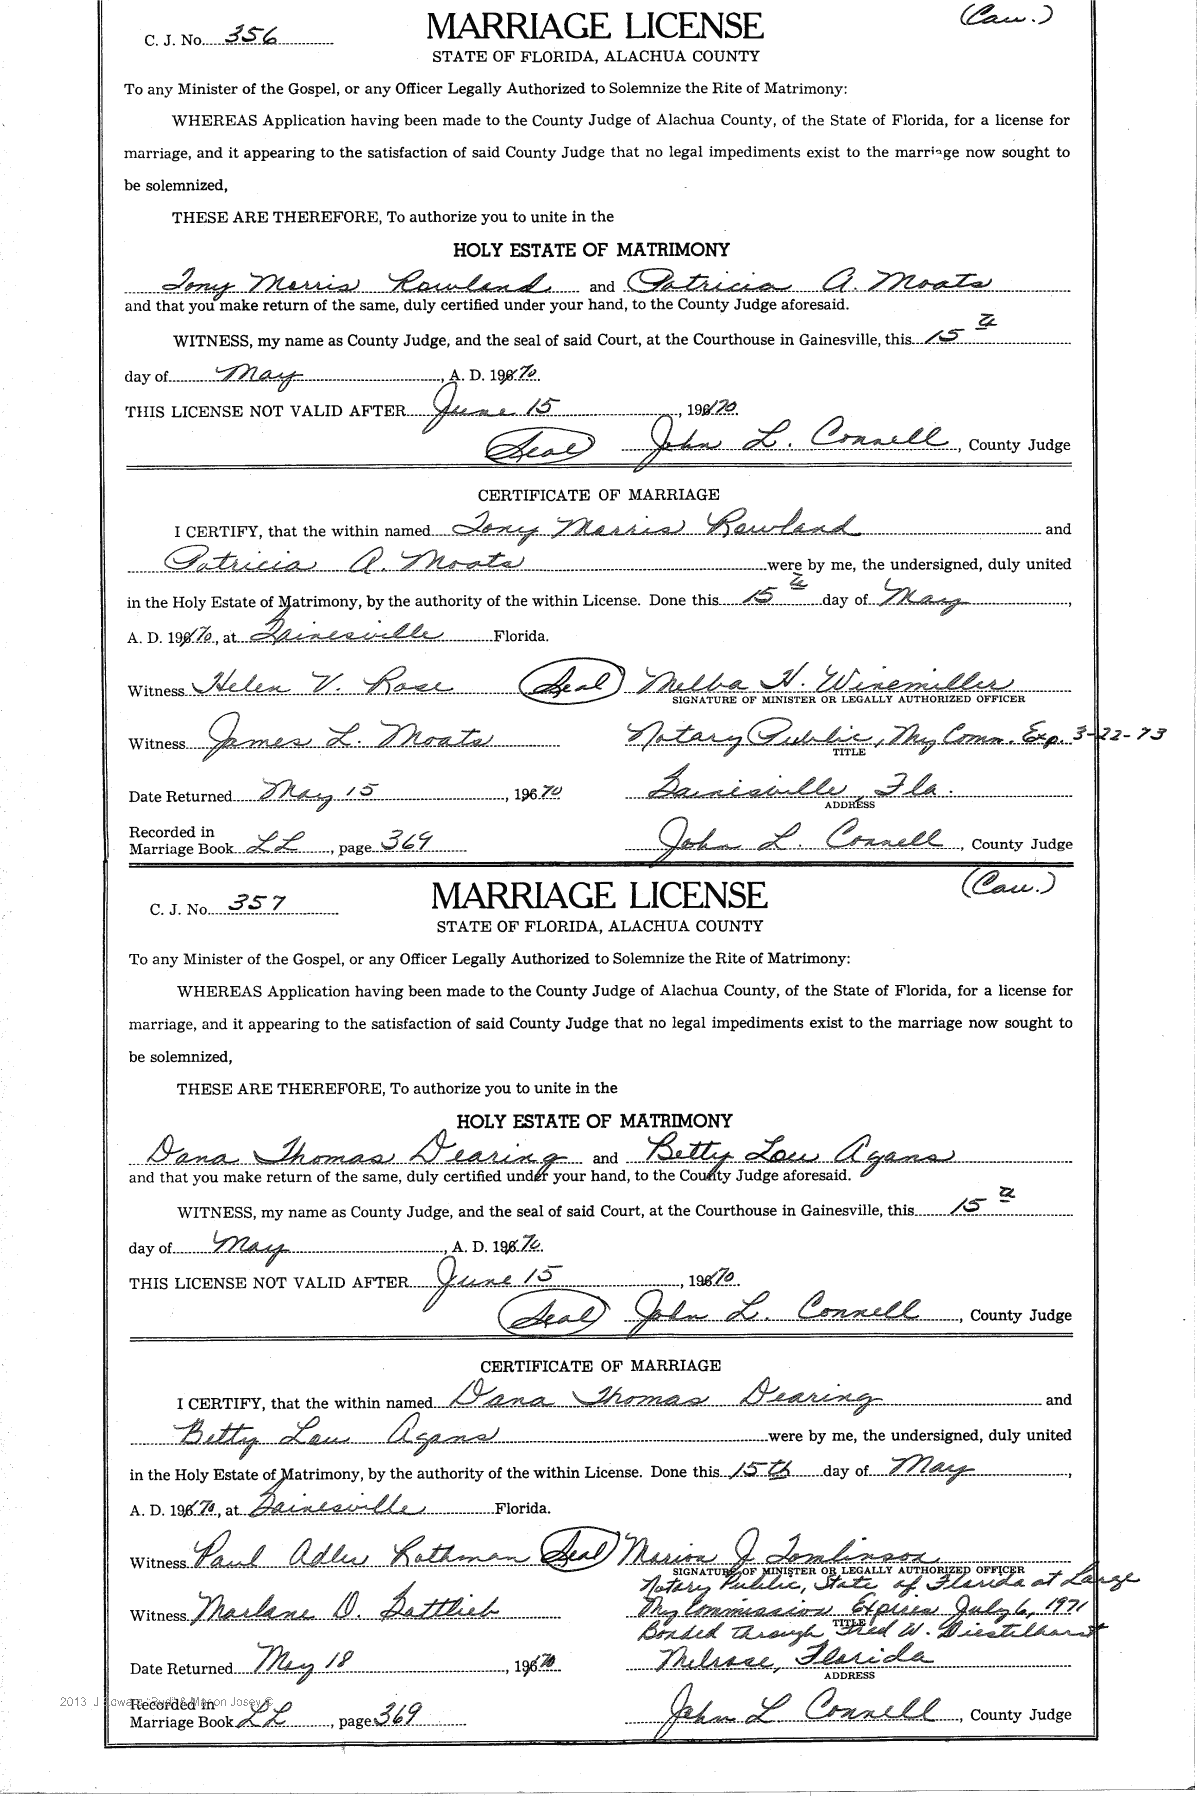 (Cau.)
C. J. No. 356 MARRIAGE LICENSE
STATE OF FLORIDA, ALACHUA COUNTY
To any Minister of the Gospel, or any Officer Legally Authorized to Solemnize the Rite of Matrimony:
WHEREAS Application having been made to the County Judge of Alachua County, of the State of Florida, for a license for
marriage, and it appearing to the satisfaction of said County Judge that no legal impediments exist to the marriage now sought to
be solemnized,
THESE ARE THEREFORE, To authorize you to unite in the
HOLY ESTATE OF MATRIMONY
Tony Morris Rowland and Patricia A. Moats
and that you make return of the same, duly certified under your hand, to the County Judge aforesaid.
WITNESS, my name as County Judge, and the seal of said Court, at the Courthouse in Gainesville, this 15th
day of May, A. D. 19670.
THIS LICENSE NOT VALID AFTER June 15, 19670.
(Seal) John L. Connell, County Judge
CERTIFICATE OF MARRIAGE
I CERTIFY, that the within named Tony Morris Rowland and
Patricia A. Moats were by me, the undersigned, duly united
in the Holy Estate of Matrimony, by the authority of the within License. Done this 15th day of May,
A. D. 19670, at Gainesville Florida.
Witness Helen V. Rose (Seal) Melba H. Winemiller
SIGNATURE OF MINISTER OR LEGALLY AUTHORIZED OFFICER
Witness James L. Moats Notary Public, My Comm. Exp. 3-22-73
TITLE
Date Returned May 15, 19670 Gainesville, Fla.
ADDRESS
Recorded in
Marriage Book LL, page 369 John L. Connell, County Judge
(Cau.)
C. J. No. 357 MARRIAGE LICENSE
STATE OF FLORIDA, ALACHUA COUNTY
To any Minister of the Gospel, or any Officer Legally Authorized to Solemnize the Rite of Matrimony:
WHEREAS Application having been made to the County Judge of Alachua County, of the State of Florida, for a license for
marriage, and it appearing to the satisfaction of said County Judge that no legal impediments exist to the marriage now sought to
be solemnized,
THESE ARE THEREFORE, To authorize you to unite in the
HOLY ESTATE OF MATRIMONY
Dana Thomas Dearing and Betty Lou Agans
and that you make return of the same, duly certified under your hand, to the County Judge aforesaid.
WITNESS, my name as County Judge, and the seal of said Court, at the Courthouse in Gainesville, this 15th
day of May, A. D. 19670.
THIS LICENSE NOT VALID AFTER June 15, 19670.
(Seal) John L. Connell, County Judge
CERTIFICATE OF MARRIAGE
I CERTIFY, that the within named Dana Thomas Dearing and
Betty Lou Agans were by me, the undersigned, duly united
in the Holy Estate of Matrimony, by the authority of the within License. Done this 15th day of May,
A. D. 19670, at Gainesville Florida.
Witness Paul Adler Rothman (Seal) Marion J. Tomlinson
SIGNATURE OF MINISTER OR LEGALLY AUTHORIZED OFFICER
Notary Public, State of Florida at Large
Witness Marlane D. Gottlieb My Commission Expires July 6, 1971
TITLE
Bonded through Fred W. Diestelhorst
Date Returned May 18, 19670 Melrose, Florida
ADDRESS
2013 J Edward "Bud" & Marion Josey ©
Recorded in
Marriage Book LL, page 369 John L. Connell, County Judge